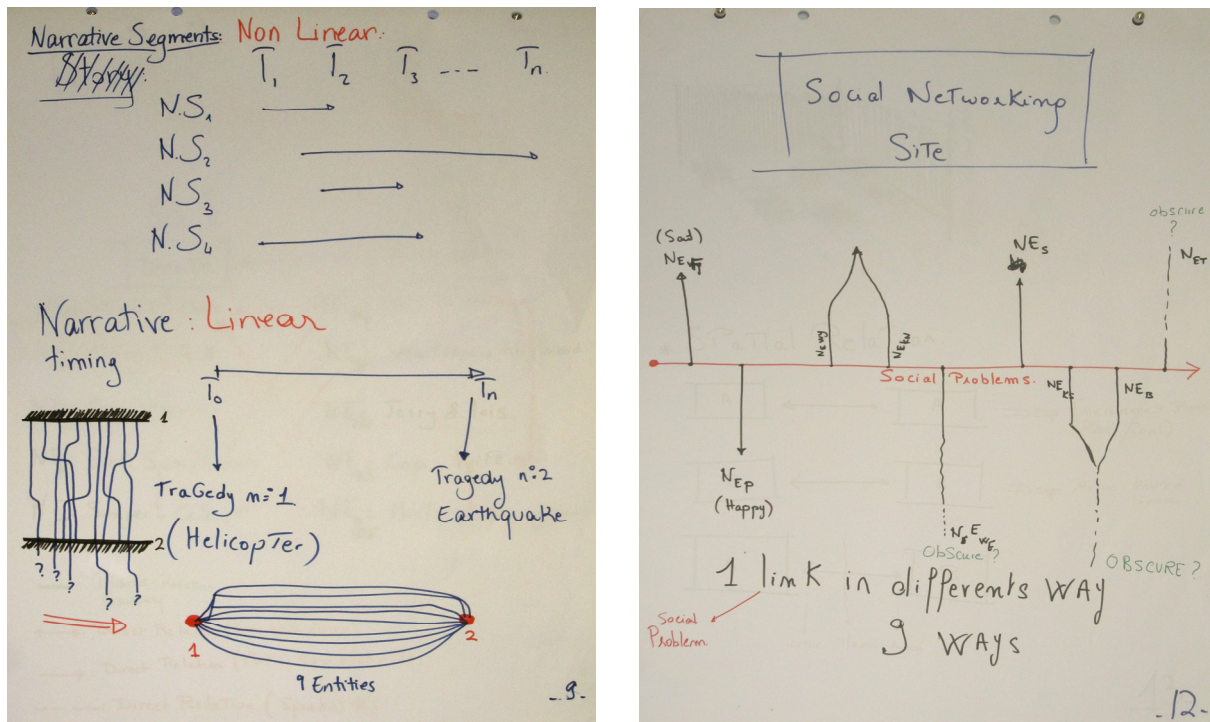 Narrative Segments: Non Linear.
Story.
T1 T2 T3 ---- Tn.
N.S1
N.S2
N.S3
N.S4
Narrative : Linear
timing
To Tn
1
2
Tragedy n:1
(Helicopter)
Tragedy n:2
Earthquake
? ? ? ? ?
1 2
9 Entities
-9-
Social Networking
Site
obscure
?
(Sad)
NES
NET
NEWY
NEKN
Social Problems.
NEKC
NEB
NEP
(Happy)
ObScure ?
OBSCURE ?
1 link in differents way
Social
Problem.
9 ways
-12-